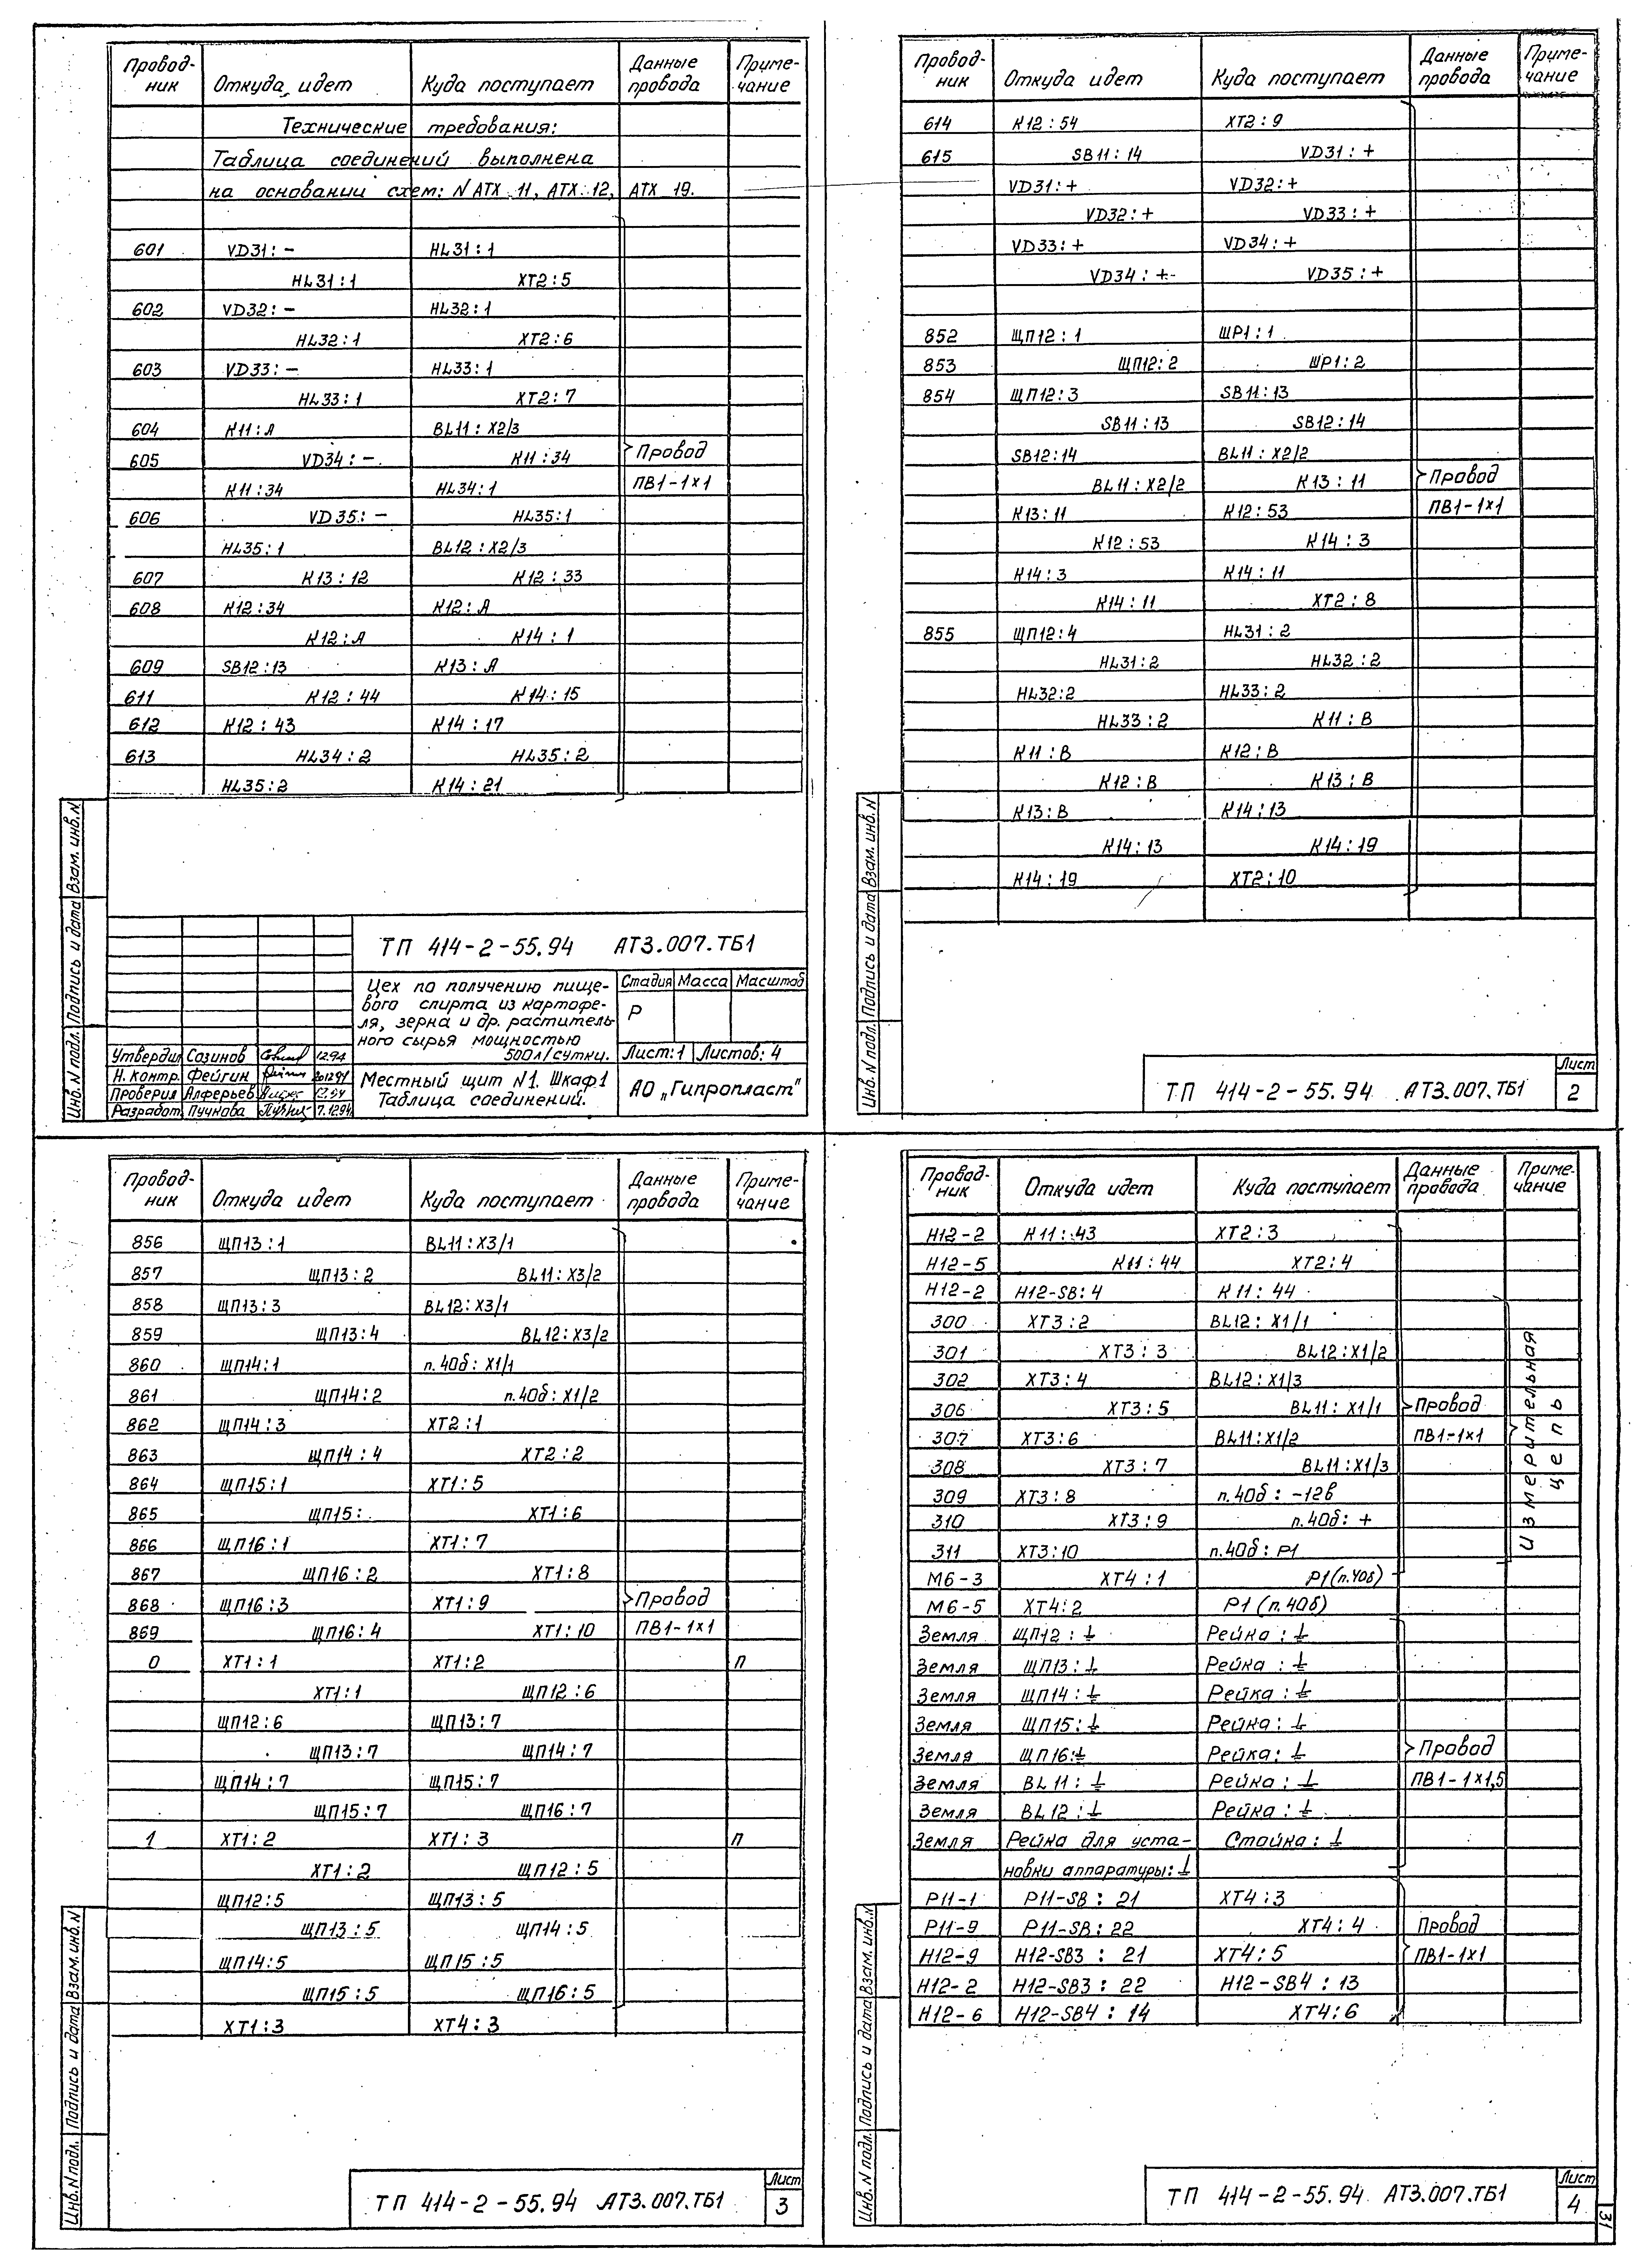 Провод-ник Откуда идет Куда поступает Данные провода Приме-чание
Технические требования:
Таблица соединений выполнена
на основании схем: N АТХ 11, АТХ 12, АТХ 19.
601 VD31:− HL31:1
HL31:1 XT2:5
602 VD32:− HL32:1
HL32:1 XT2:6
603 VD33:− HL33:1
HL33:1 XT2:7
604 К11:А BL11:X2/3
605 VD34:− К11:34 Провод
К11:34 HL34:1 ПВ1-1×1
606 VD35:− HL35:1
HL35:1 BL12:X2/3
607 К13:12 К12:33
608 К12:34 К12:А
К12:А К14:1
609 SB12:13 К13:А
611 К12:44 К14:15
612 К12:43 К14:17
613 HL34:2 HL35:2
HL35:2 К14:21
Инв. N подл. Подпись и дата Взам. инв. N
ТП 414-2-55.94 АТ3.007.ТБ1
Цех по получению пище-
вого спирта из картофе-
ля, зерна и др. раститель-
ного сырья мощностью
500л/сутки.
Стадия Масса Масштаб
Р
Лист:1 Листов:4
Утвердил Созинов 12.94
Н. контр. Фейгин 20.12.94
Проверил Алферьев 12.94
Разработ. Пучкова 7.12.94
Местный щит N1. Шкаф1
Таблица соединений.
АО „Гипропласт"
Провод-ник Откуда идет Куда поступает Данные провода Приме-чание
614 К12:54 XT2:9
615 SB11:14 VD31:+
VD31:+ VD32:+
VD32:+ VD33:+
VD33:+ VD34:+
VD34:+ VD35:+
852 ЩП12:1 ШР1:1
853 ЩП12:2 ШР1:2
854 ЩП12:3 SB11:13
SB11:13 SB12:14
SB12:14 BL11:X2/2
BL11:X2/2 К13:11 Провод
К13:11 К12:53 ПВ1-1×1
К12:53 К14:3
К14:3 К14:11
К14:11 XT2:8
855 ЩП12:4 HL31:2
HL31:2 HL32:2
HL32:2 HL33:2
HL33:2 К11:В
К11:В К12:В
К12:В К13:В
К13:В К14:13
К14:13 К14:19
К14:19 XT2:10
Инв. N подл. Подпись и дата Взам. инв. N
ТП 414-2-55.94 АТ3.007.ТБ1
Лист
2
Провод-ник Откуда идет Куда поступает Данные провода Приме-чание
856 ЩП13:1 BL11:X3/1
857 ЩП13:2 BL11:X3/2
858 ЩП13:3 BL12:X3/1
859 ЩП13:4 BL12:X3/2
860 ЩП14:1 п.40б:X1/1
861 ЩП14:2 п.40б:X1/2
862 ЩП14:3 XT2:1
863 ЩП14:4 XT2:2
864 ЩП15:1 XT1:5
865 ЩП15: XT1:6
866 ЩП16:1 XT1:7
867 ЩП16:2 XT1:8
868 ЩП16:3 XT1:9 Провод
869 ЩП16:4 XT1:10 ПВ1-1×1
0 XT1:1 XT1:2 П
XT1:1 ЩП12:6
ЩП12:6 ЩП13:7
ЩП13:7 ЩП14:7
ЩП14:7 ЩП15:7
ЩП15:7 ЩП16:7
1 XT1:2 XT1:3 П
XT1:2 ЩП12:5
ЩП12:5 ЩП13:5
ЩП13:5 ЩП14:5
ЩП14:5 ЩП15:5
ЩП15:5 ЩП16:5
XT1:3 XT4:3
Инв. N подл. Подпись и дата Взам. инв. N
ТП 414-2-55.94 АТ3.007.ТБ1
Лист
3
Провод-ник Откуда идет Куда поступает Данные провода Приме-чание
Н12-2 К11:43 XT2:3
Н12-5 К11:44 XT2:4
Н12-2 Н12-SB:4 К11:44
300 XT3:2 BL12:X1/1
301 XT3:3 BL12:X1/2
302 XT3:4 BL12:X1/3
306 XT3:5 BL11:X1/1 Провод
307 XT3:6 BL11:X1/2 ПВ1-1×1
308 XT3:7 BL11:X1/3
309 XT3:8 п.40б:-12в
310 XT3:9 п.40б:+
311 XT3:10 п.40б:Р1
Измерительная цепь
М6-3 XT4:1 Р1(п.40б)
М6-5 XT4:2 Р1(п.40б)
Земля ЩП12:⏚ Рейка:⏚
Земля ЩП13:⏚ Рейка:⏚
Земля ЩП14:⏚ Рейка:⏚
Земля ЩП15:⏚ Рейка:⏚
Земля ЩП16:⏚ Рейка:⏚ Провод
Земля BL11:⏚ Рейка:⏚ ПВ1-1×1,5
Земля BL12:⏚ Рейка:⏚
Земля Рейка для уста- Стойка:⏚
новки аппаратуры:⏚
Р11-1 Р11-SB:21 XT4:3
Р11-9 Р11-SB:22 XT4:4 Провод
Н12-9 Н12-SB3:21 XT4:5 ПВ1-1×1
Н12-2 Н12-SB3:22 Н12-SB4:13
Н12-6 Н12-SB4:14 XT4:6
Инв. N подл. Подпись и дата Взам. инв. N
ТП 414-2-55.94 АТ3.007.ТБ1
Лист
4
31